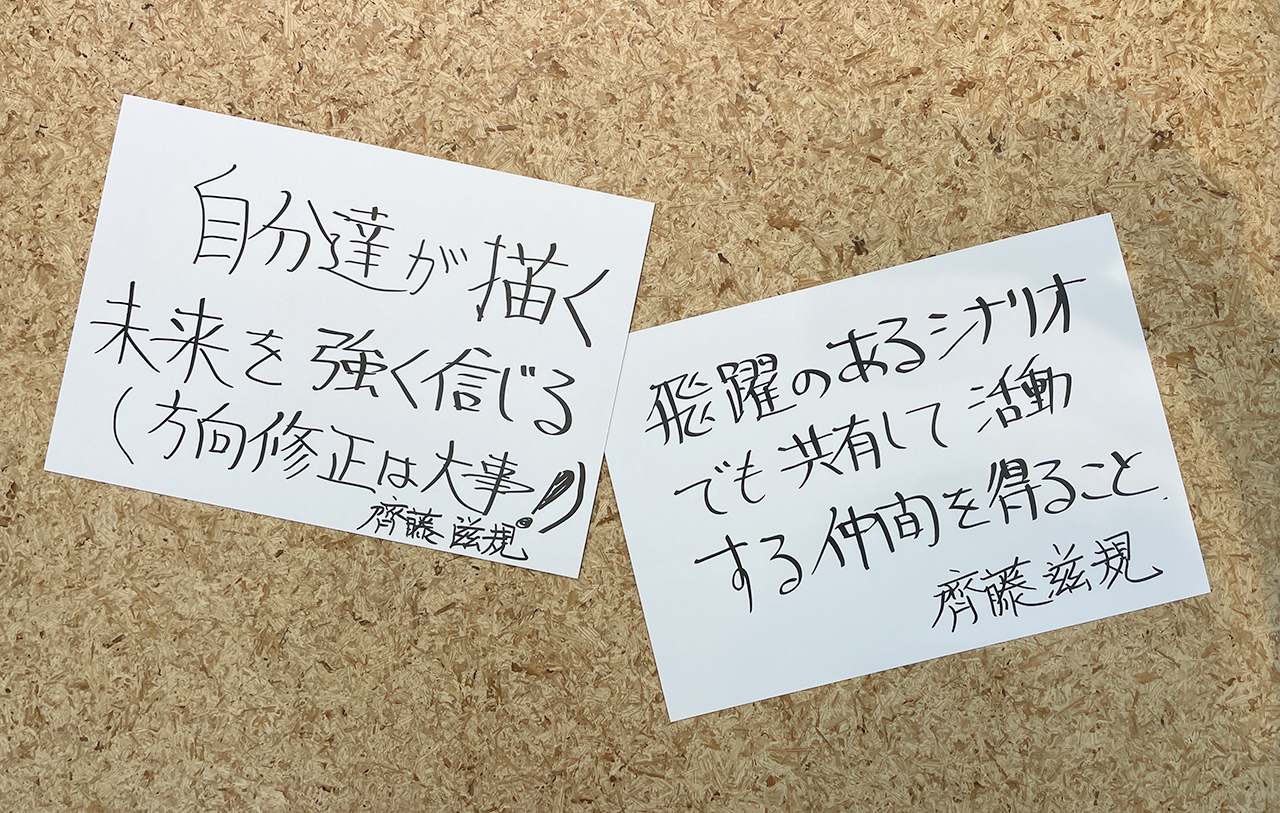 自分達が描く
未来を強く信じる
(方向修正は大事!)
齊藤滋規
飛躍のあるシナリオ
でも共有して活動
する仲間を得ること.
齊藤滋規